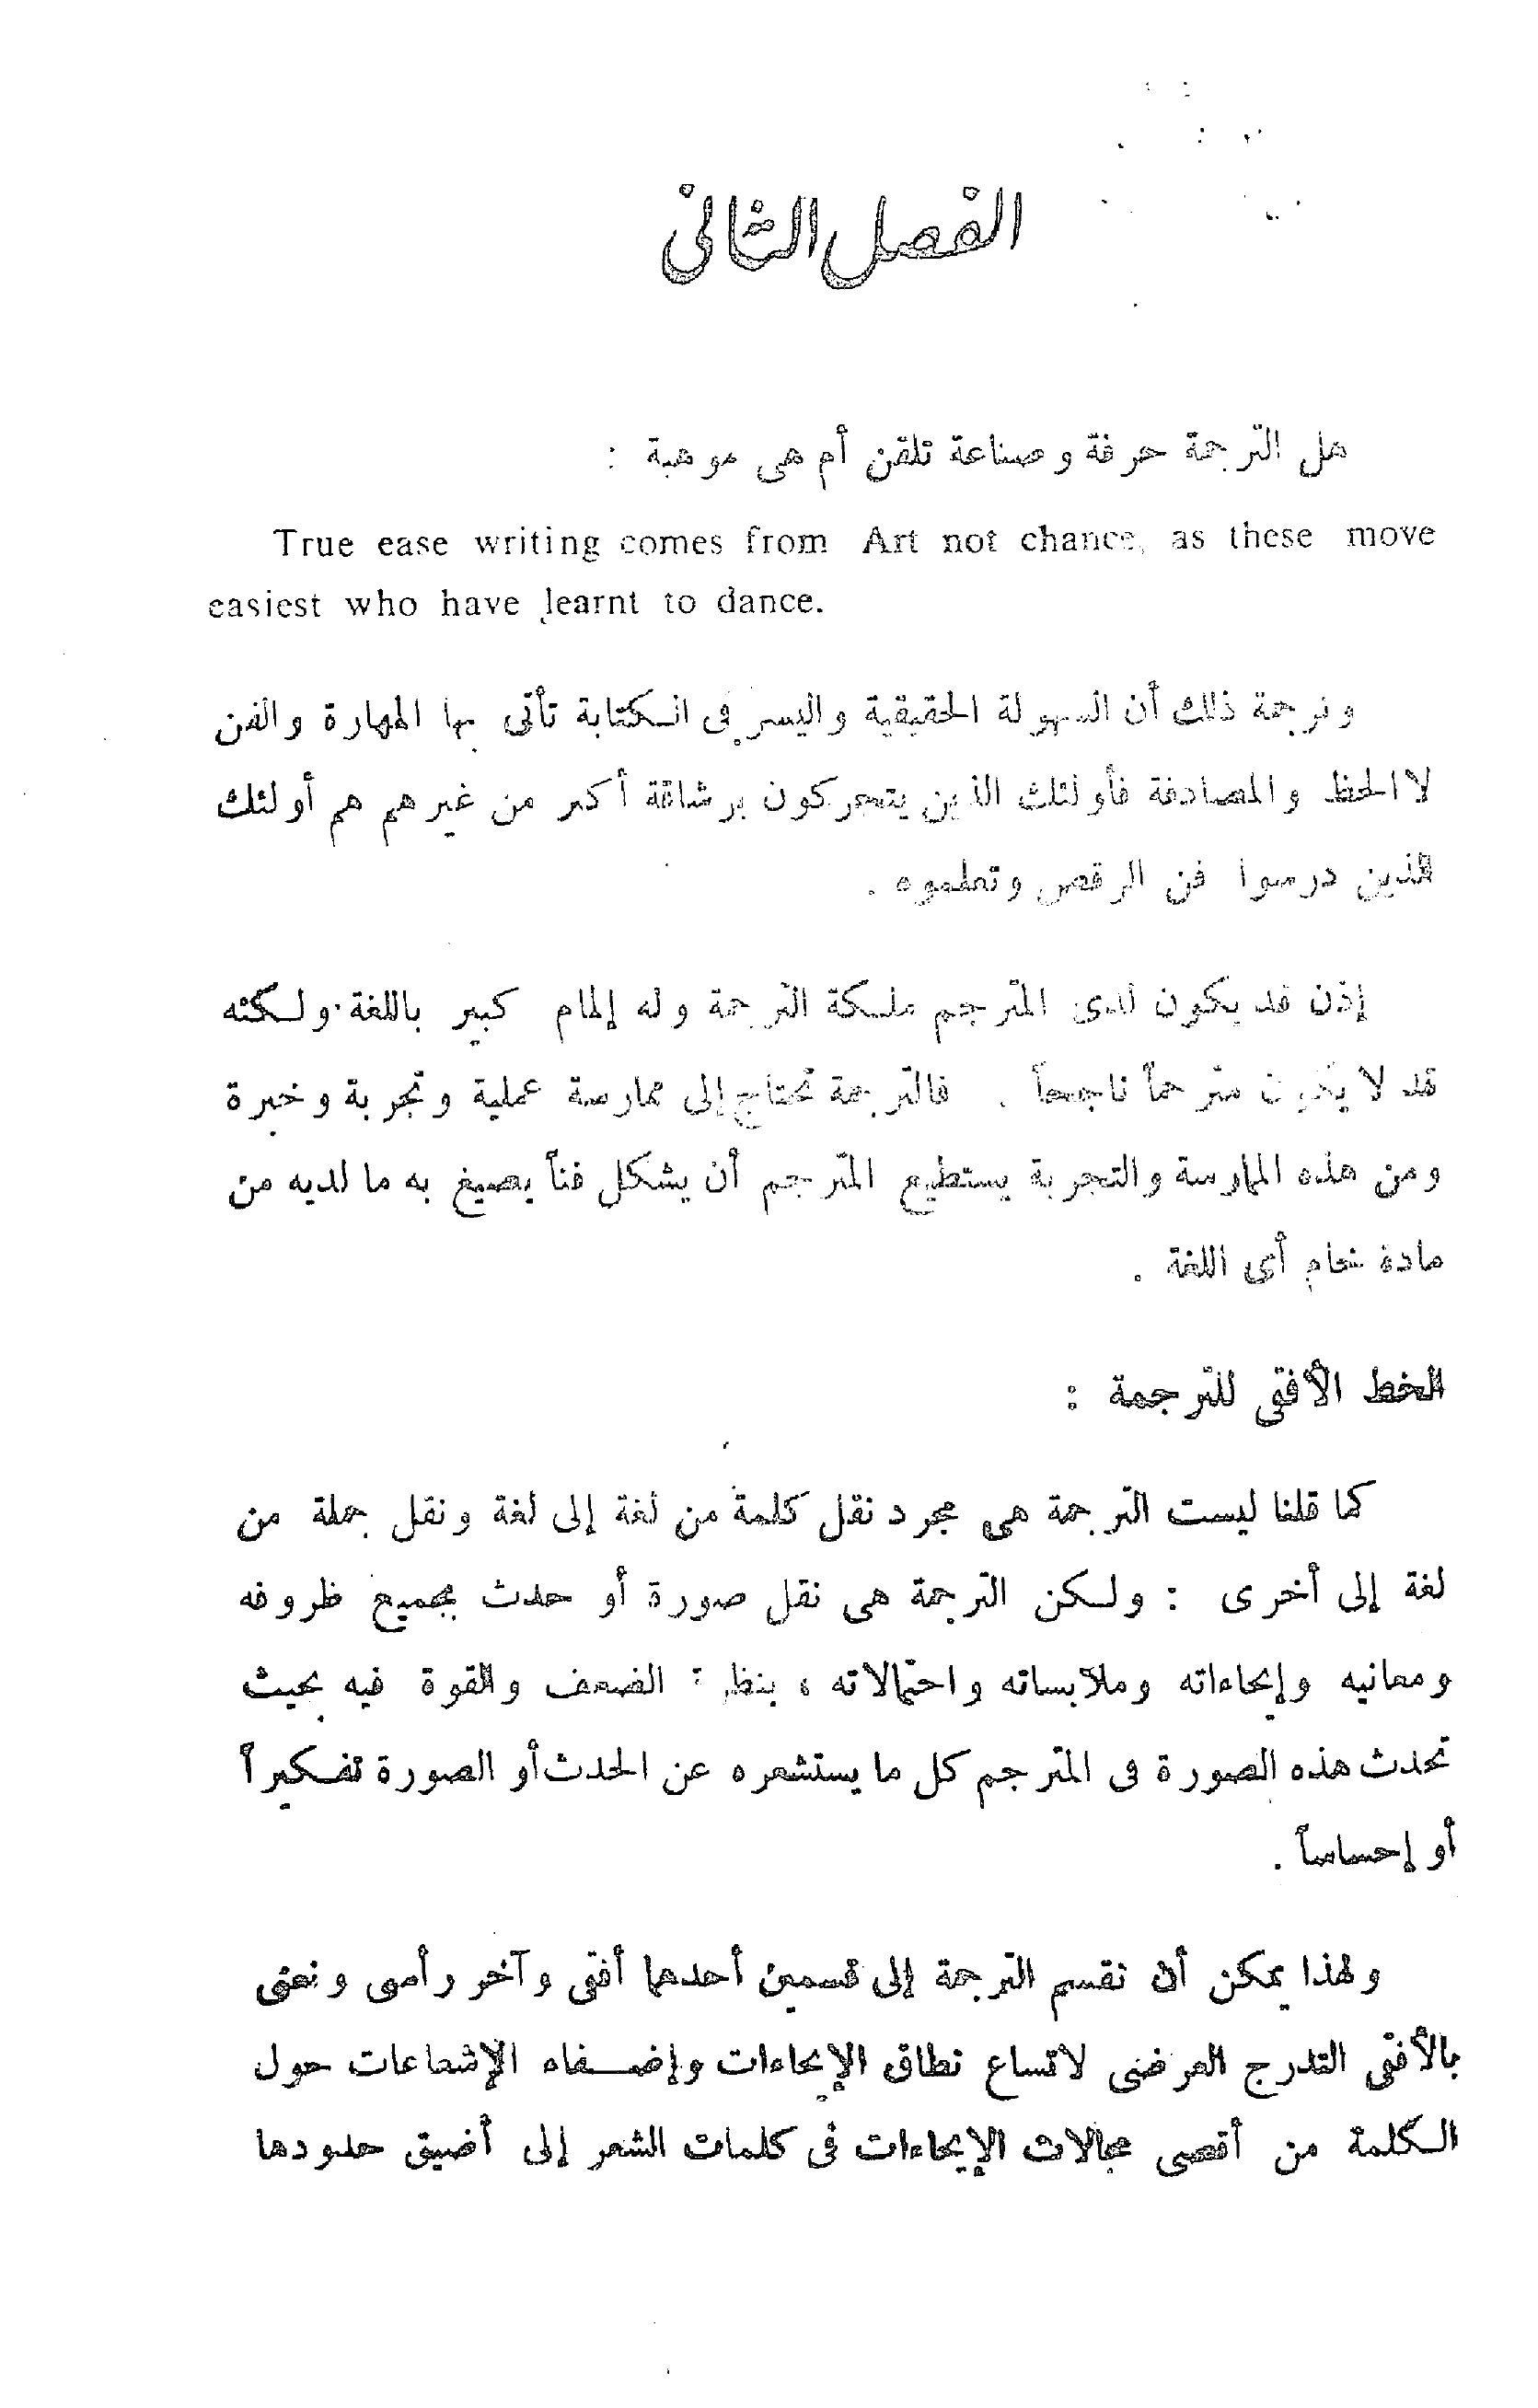 الفصل الثانى
هل الترجمة حرفة وصناعة تلقن أم هى موهبة :
True ease writing comes from Art not chance, as these move
easiest who have learnt to dance.
وترجمة ذلك أن السهولة الحقيقية واليسر فى الـكتابة تأتى بها المهارة والفن
لا الحظ والمصادفة فأولئك الذين يتحركون برشاقة أكبر من غيرهم هم أولئك
الذين درسوا فن الرقص وتعلموه .
إذن قد يكون لدى المترجم ملـكة الترجمة وله إلمام كبير باللغة ولـكنه
قد لا يكون مترجماً ناجحاً . فالترجمة تحتاج إلى ممارسة عملية وتجربة وخبرة
ومن هذه الممارسة والتجربة يستطيع المترجم أن يشكل فناً يصيغ به ما لديه من
مادة خام أى اللغة .
الخط الأفقى للترجمة :
كما قلنا ليست الترجمة هى مجرد نقل كلمة من لغة إلى لغة ونقل جملة من
لغة إلى أخرى : ولـكن الترجمة هى نقل صورة أو حدث بجميع ظروفه
ومعانيه وإيحاءاته وملابساته واحتمالاته ، الضعف والقوة فيه بحيث
تحدث هذه الصورة فى المترجم كل ما يستشعره عن الحدث أو الصورة تفـكيراً
أو إحساساً .
ولهذا يمكن أن نقسم الترجمة إلى قسمين أحدها أفقى وآخر رأسى ونعنى
بالأفقى التدرج العرضى لاتساع نطاق الإيحاءات وإضـفاء الإشعاعات حول
الـكلمة من أقصى مجالات الإيحاءات فى كلمات الشعر إلى أضيق حدودها